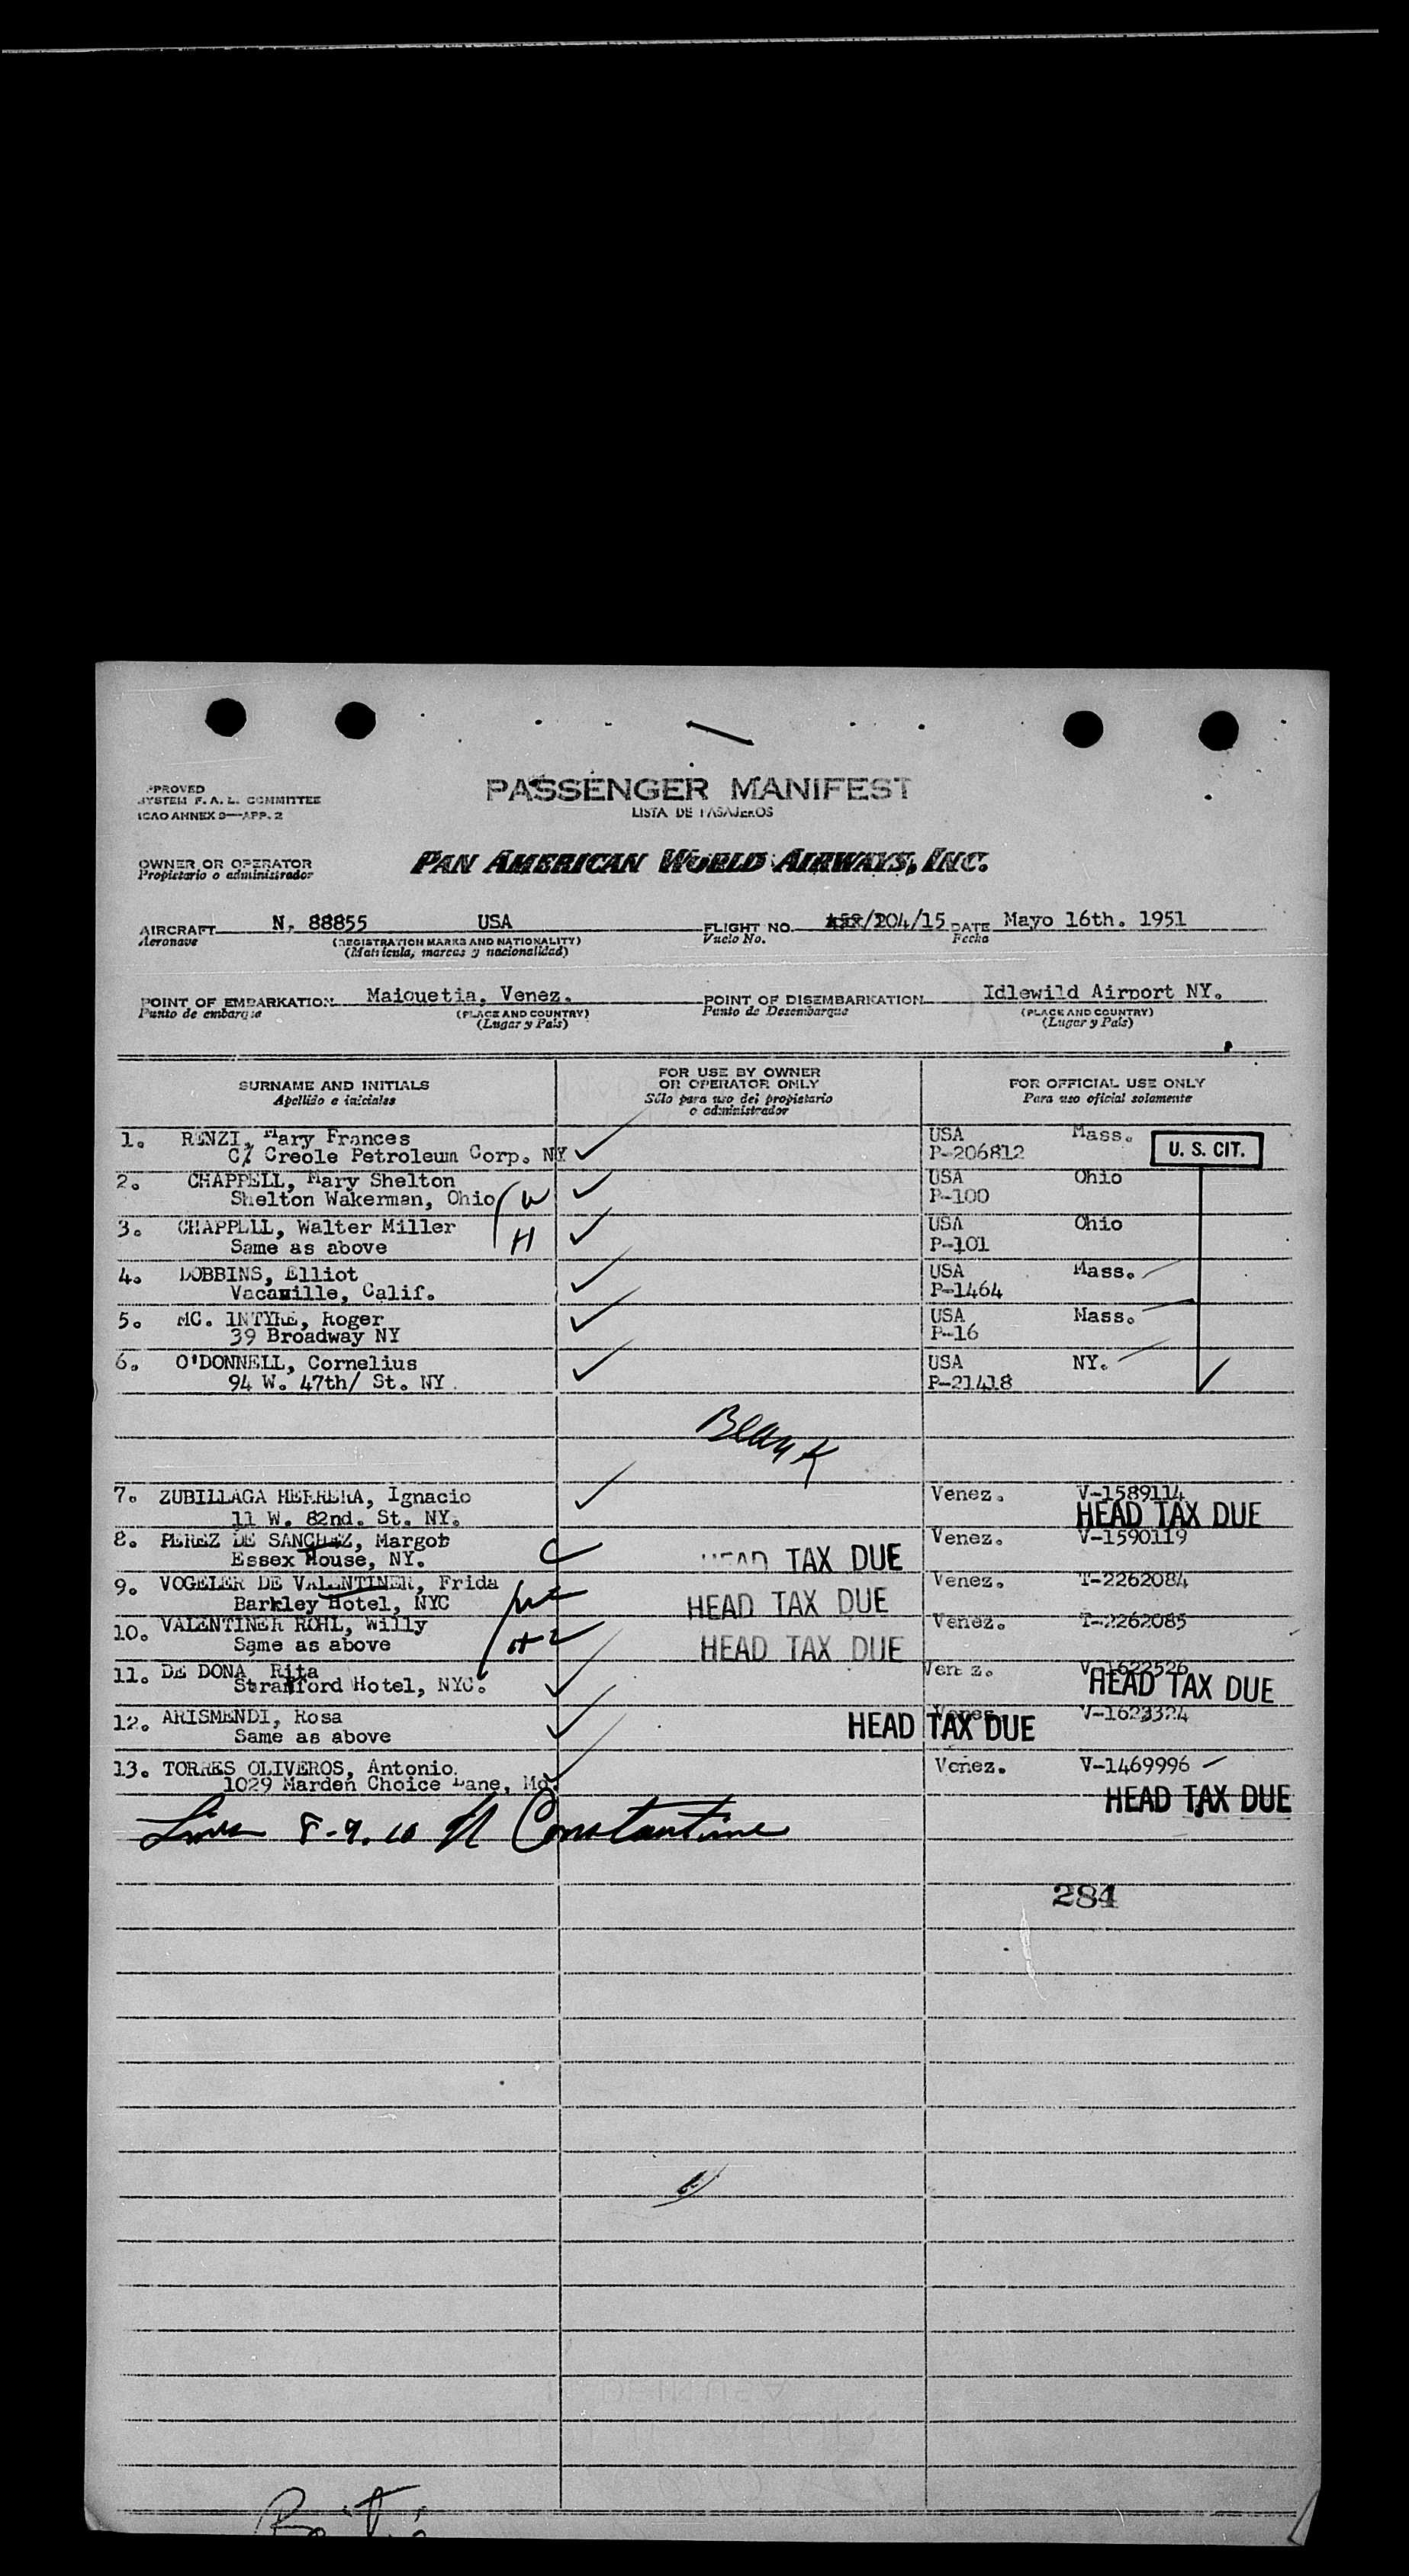 PASSENGER MANIFEST
LISTA DE PASAJEROS
APPROVED
SYSTEM F. A. L. COMMITTEE
ICAO ANNEX 9—APP. 2
OWNER OR OPERATOR
Propietario o administrador
PAN AMERICAN WORLD AIRWAYS, INC.
AIRCRAFT N. 88855 USA FLIGHT NO. /204/15 DATE Mayo 16th. 1951
Aeronave (REGISTRATION MARKS AND NATIONALITY) Vuelo No. Fecha
(Matricula, marcas y nacionalidad)
POINT OF EMBARKATION Maiquetia, Venez. POINT OF DISEMBARKATION Idlewild Airport NY.
Punto de embarque (PLACE AND COUNTRY) Punto de Desembarque (PLACE AND COUNTRY)
(Lugar y Pais) (Lugar y Pais)
SURNAME AND INITIALS
Apellido e iniciales
FOR USE BY OWNER
OR OPERATOR ONLY
Sólo para uso del propietario
o administrador
FOR OFFICIAL USE ONLY
Para uso oficial solamente
1. RENZI, Mary Frances USA Mass.
C/ Creole Petroleum Corp. NY P-206812 U. S. CIT.
2. CHAPPELL, Mary Shelton USA Ohio
Shelton Wakerman, Ohio W P-100
3. CHAPPELL, Walter Miller USA Ohio
Same as above H P-101
4. DOBBINS, Elliot USA Mass.
Vacaville, Calif. P-1464
5. MC. INTYRE, Roger USA Mass.
39 Broadway NY P-16
6. O'DONNELL, Cornelius USA NY.
94 W. 47th/ St. NY P-21418
Blank
7. ZUBILLAGA HERRERA, Ignacio Venez. V-1589114
11 W. 82nd. St. NY. HEAD TAX DUE
8. PEREZ DE SANCHEZ, Margot Venez. V-1590119
Essex House, NY. HEAD TAX DUE
9. VOGELER DE VALENTINER, Frida Venez. T-2262084
Barkley Hotel, NYC W HEAD TAX DUE
10. VALENTINER ROHL, Willy Venez. T-2262085
Same as above H HEAD TAX DUE
11. DE DONA, Rita Venez. V-1622526
Stranford Hotel, NYC. HEAD TAX DUE
12. ARISMENDI, Rosa Venez. V-1623324
Same as above HEAD TAX DUE
13. TORRES OLIVEROS, Antonio. Venez. V-1469996
1029 Marden Choice Lane, Mo. HEAD TAX DUE
Lines 8-9.10 Constantine
284